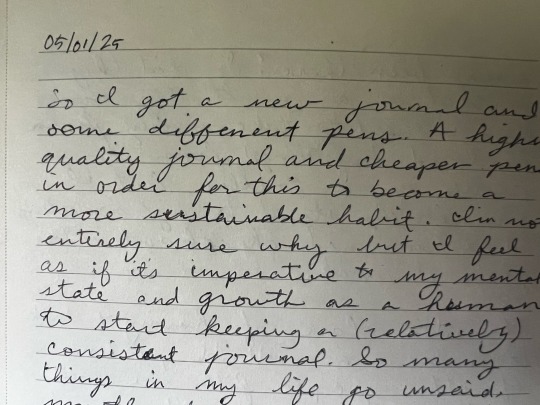 05/01/25
So I got a new journal and
some different pens. A high
quality journal and cheaper pen
in order for this to become a
more sustainable habit. I'm no
entirely sure why but I feel
as if it's imperative to my mental
state and growth as a human
to start keeping a (relatively)
consistent journal. So many
things in my life go unsaid.